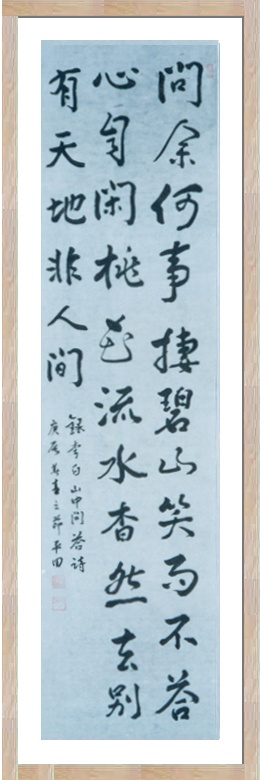 問余何事棲碧山笑而不答
心自閑桃花流水杳然去別
有天地非人間
錄李白山中問答詩
庚之節平田